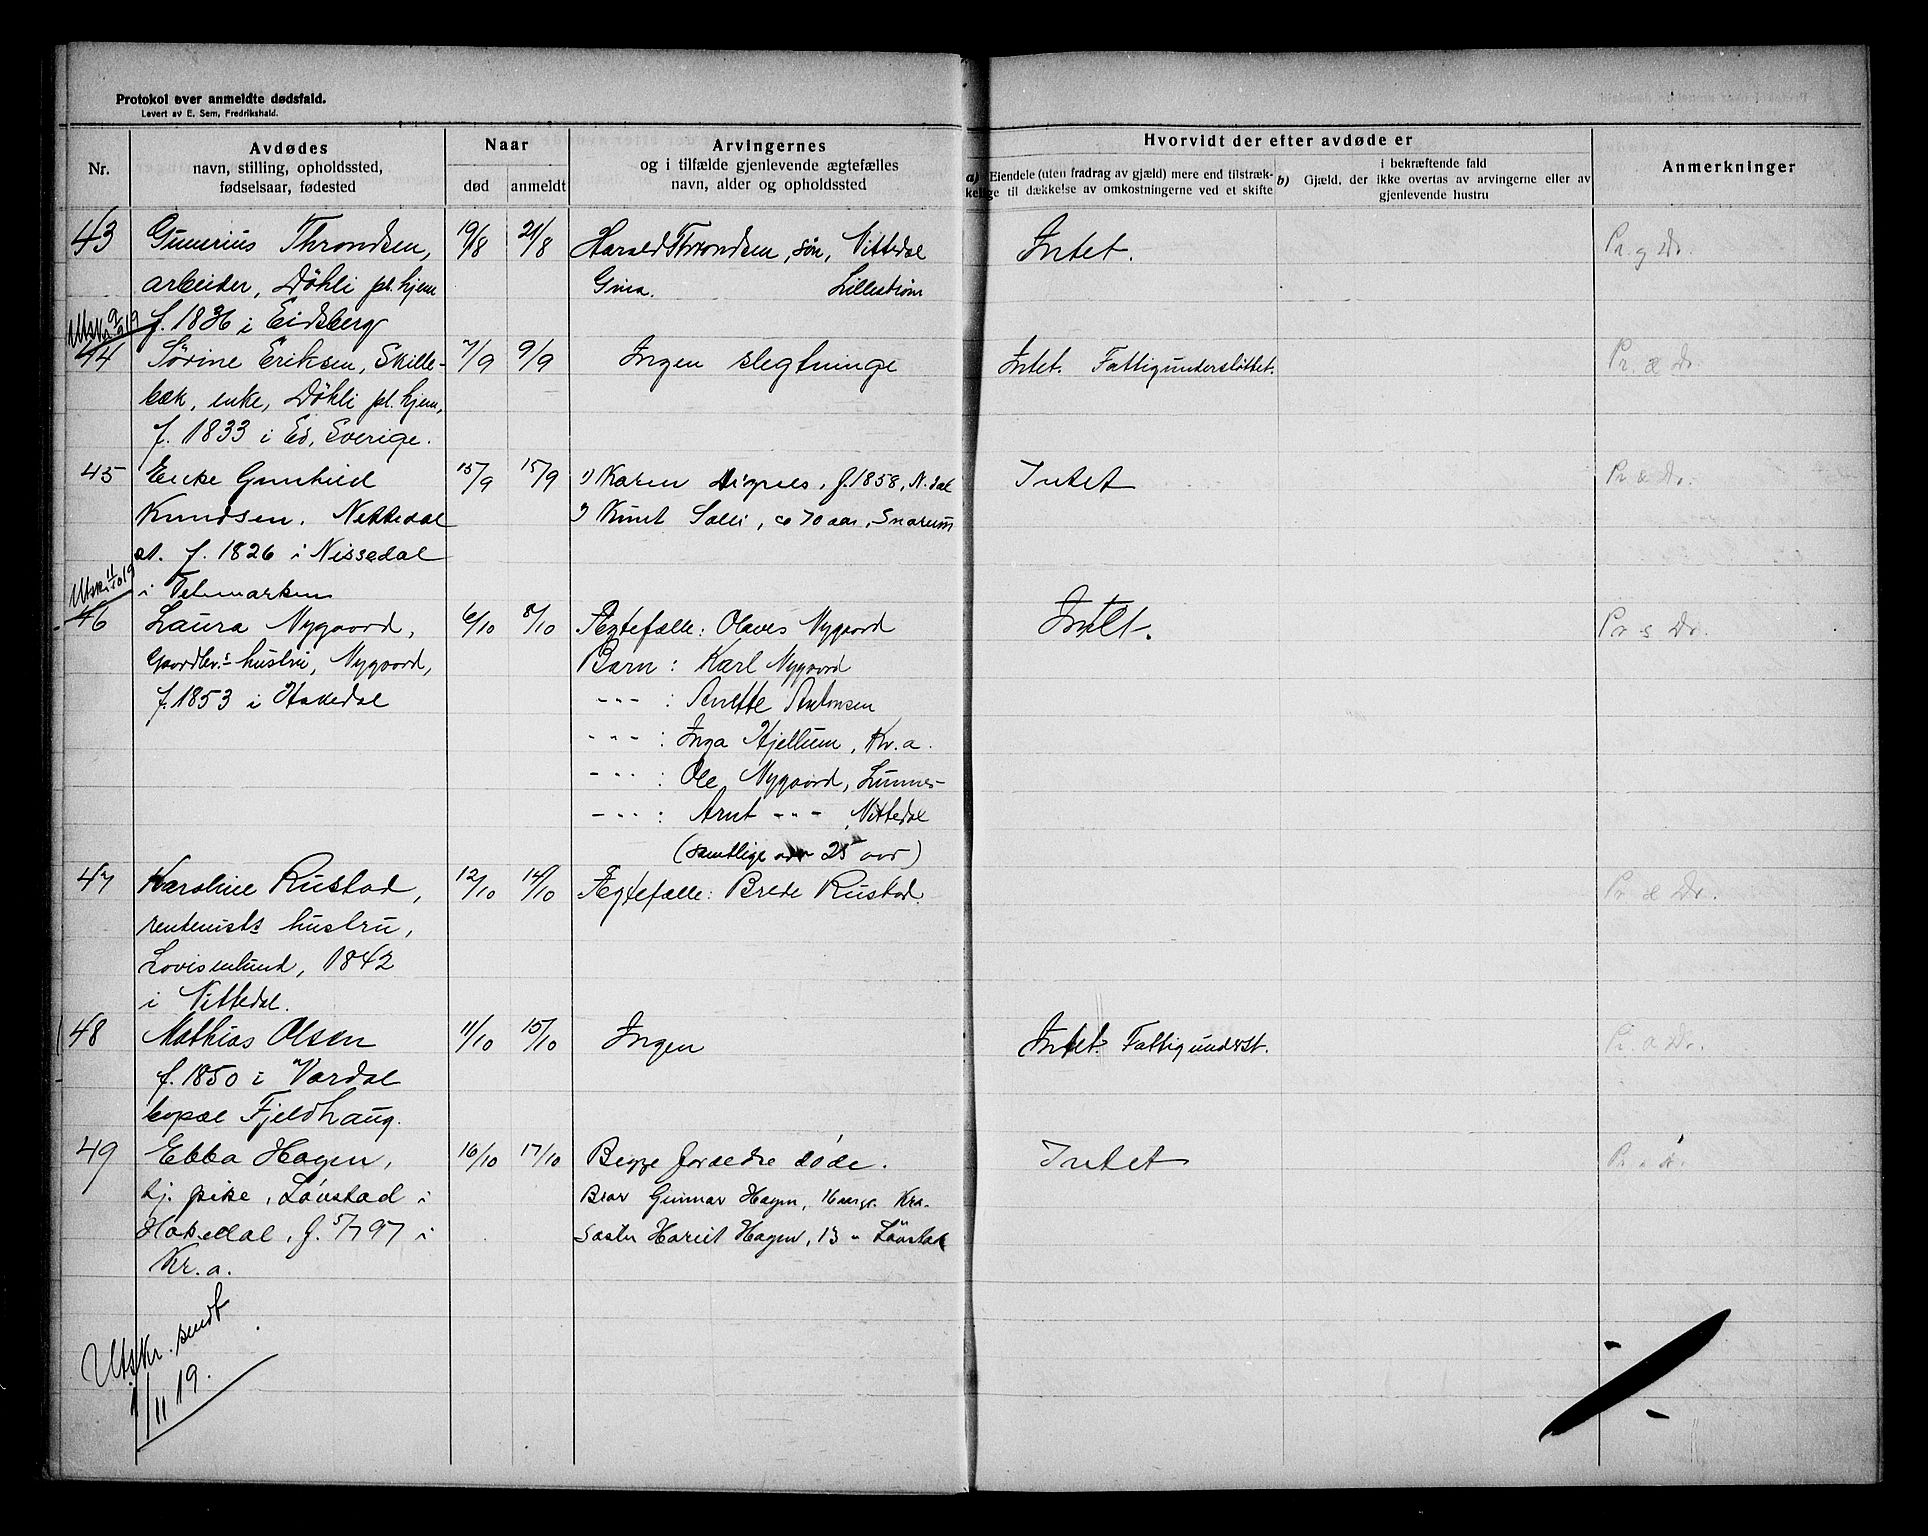 Protokol over anmeldte dødsfald.
Levert av E. Sem, Fredrikshald.
Nr.
Avdødes
navn, stilling, opholdssted,
fødselsaar, fødested
Naar
død
anmeldt
Arvingernes
og i tilfælde gjenlevende ægtefælles
navn, alder og opholdssted
Hvorvidt der efter avdøde er
a) Eiendele (uten fradrag av gjæld) mere end tilstræk-
kelige til dækkelse av omkostningerne ved et skifte
b)
i bekræftende fald
Gjæld, der ikke overtas av arvingerne eller av
gjenlevende hustru
Anmerkninger
43 Gunerius Throndsen, 19/8 21/8 Harald Throndsen, søn, Nittedal Intet.
arbeider, Döhli pl. hjem Gina. Lilleström
f. 1836 i Eidsberg
Utskr. 9/9 19
44 Sörine Eriksen, Skille- 7/9 9/9 Ingen slegtninge Intet. Fattigunderstöttet.
bæk, enke, Döhli pl. hjem,
f. 1833 i Ed, Sverige.
45 Enke Gunhild 15/9 15/9 1) Karen Signes, f. 1858, N.dal Intet
Knudsen, Nittedal 2) Knut Solli, ca 70 aar, Snarum
st. f. 1826 i Nissedal
i Telemarken
Utskr. 11/10 19
46 Laura Nygaard, 6/10 8/10 Ægtefælle: Olaves Nygaard Intet.
Gaardbr.s hustru, Nygaard, Barn: Karl Nygaard
f. 1853 i Hakedal --- : Anette Antonsen
--- : Inga Hjellum, Kr.a.
--- : Ole Nygaard, Lunner
--- : Arnt --- , Nittedal
(samtlige over 25 aar)
47 Karoline Rustad, 12/10 14/10 Ægtefælle: Brede Rustad.
rentenists hustru,
Lovisenlund, 1842
i Nittedal.
48 Mathias Olsen 11/10 15/10 Ingen Intet. Fattigunderst.
f. 1850 i Vardal
bopæl Fjeldhaug.
49 Ebba Hagen, 16/10 17/10 Begge forældre döde. Intet
tj. pike, Lövstad i Bror Gunnar Hagen, 16 aar, Kra.
Hakedal, f. 5/7 97 i Söster Hariet Hagen, 13 " Lövstad
Kr.a.
Utskr. sendt
1/11 19.